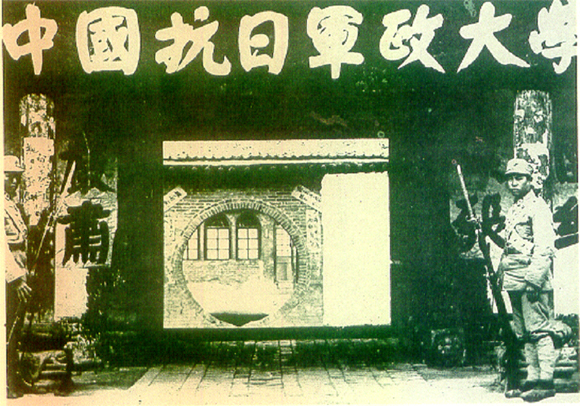 中國抗日軍政大學
肅